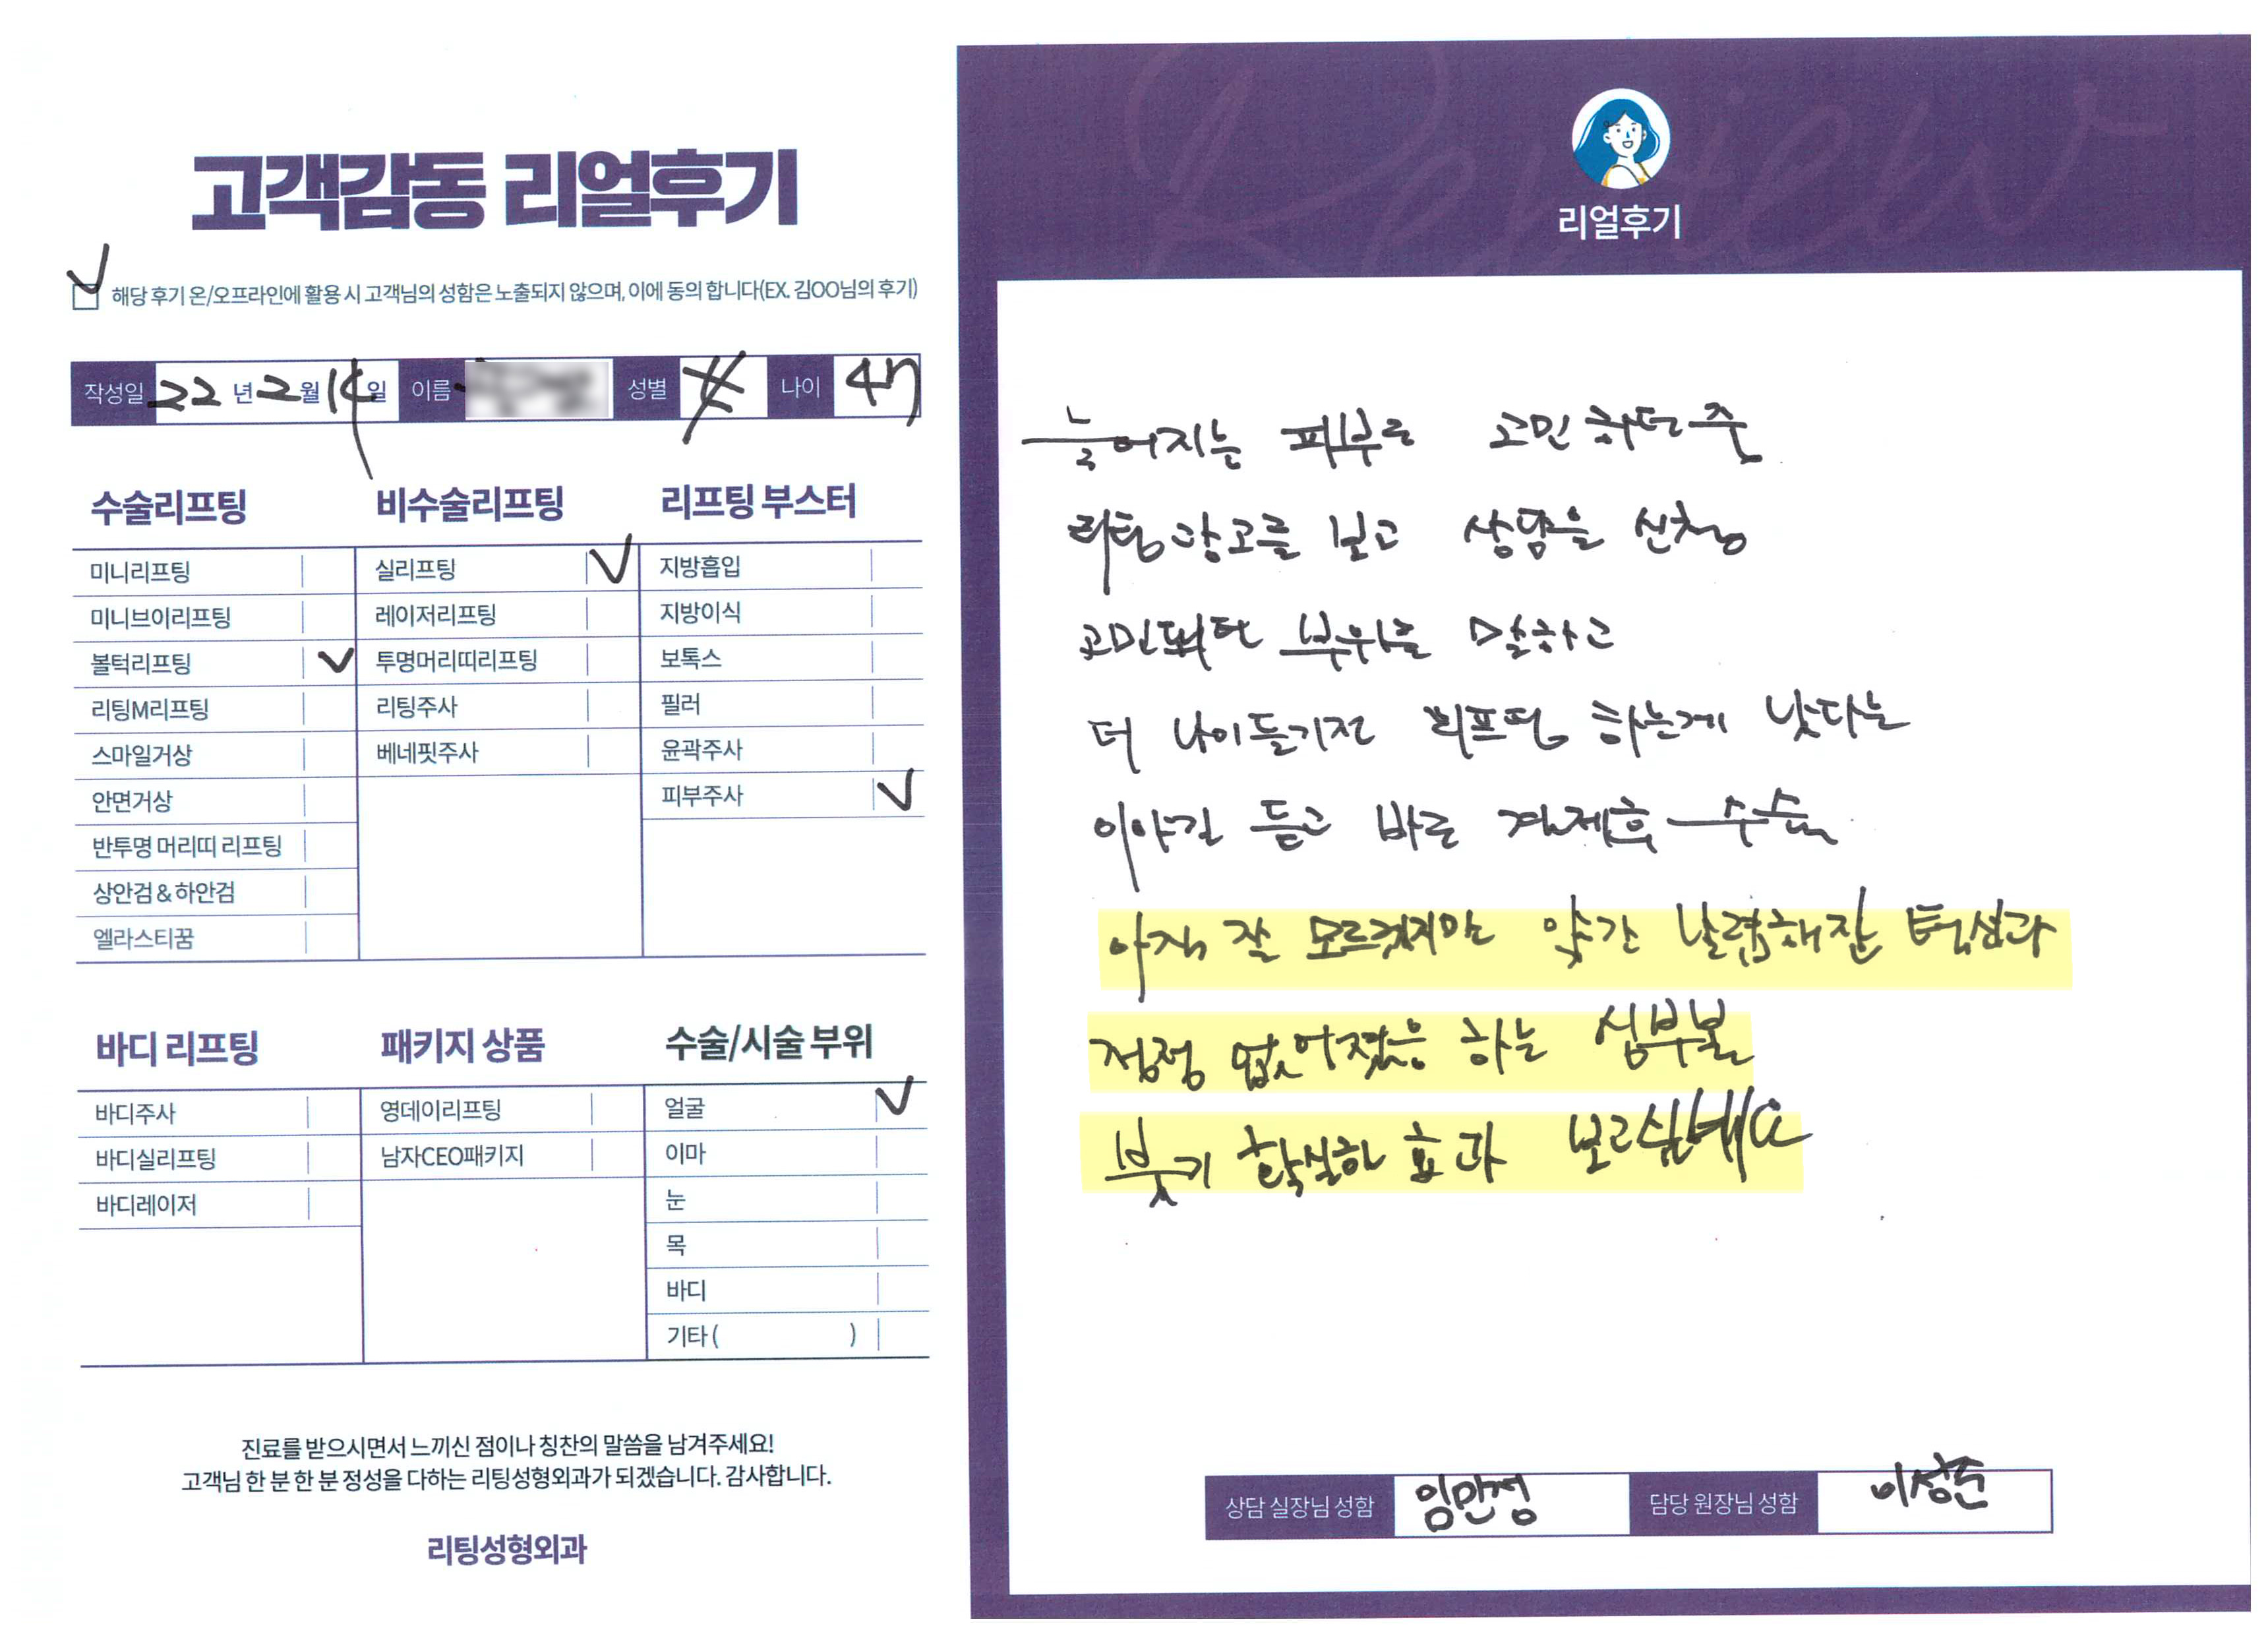 고객감동 리얼후기
해당 후기 온/오프라인에 활용 시 고객님의 성함은 노출되지 않으며, 이에 동의 합니다(EX. 김OO님의 후기)
작성일 22년 2월 14일 이름 성별 나이 47
수술리프팅 비수술리프팅 리프팅 부스터
미니리프팅 실리프팅 지방흡입
미니브이리프팅 레이저리프팅 지방이식
볼턱리프팅 투명머리띠리프팅 보톡스
리팅M리프팅 리팅주사 필러
스마일거상 베네핏주사 윤곽주사
안면거상 피부주사
반투명 머리띠 리프팅
상안검&하안검
엘라스티꿈
바디 리프팅 패키지 상품 수술/시술 부위
바디주사 영데이리프팅 얼굴
바디실리프팅 남자CEO패키지 이마
바디레이저 눈
목
바디
기타 ( )
진료를 받으시면서 느끼신 점이나 칭찬의 말씀을 남겨주세요!
고객님 한 분 한 분 정성을 다하는 리팅성형외과가 되겠습니다. 감사합니다.
리팅성형외과
Review
리얼후기
늘어지는 피부로 고민하던 중
리팅광고를 보고 상담을 신청
고민되던 부위를 말하고
더 나이들기전 리프팅 하는게 낫다는
이야길 듣고 바로 결제후 수술
아직 잘 모르겠지만 약간 날렵해진 턱선과
점점 없어졌음 하는 심부볼
붓기 확실히 효과 보고싶네요
상담 실장님 성함 임만정 담당 원장님 성함 이상준